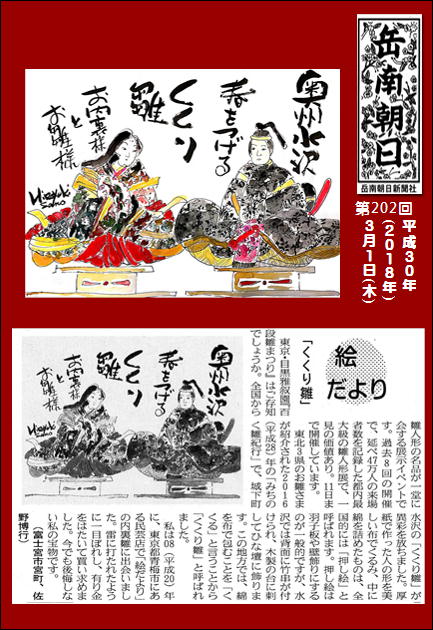 岳南朝日
岳南朝日新聞社
第202回
平成30年
(2018年)
3月1日(木)
奥州水沢
春をつげる
くくり
雛
お内裏様
と
お雛様
Hiroyuki
Sano
絵
だより
「くくり雛」
東京・目黒雅叙園『百
段雛まつり』はご存知
でしょうか。全国から
雛人形の名品が一堂に
会する展示イベントで
す。過去8回の開催
で、延べ47万人の来場
者数を記録した都内最
大級の雛人形展で、一
見の価値あり。11日ま
で開催しています。
東北3県のお雛さま
が紹介された2016
(平成28)年の「みちの
く雛紀行」で、城下町
水沢の「くくり雛」が
異彩を放ちました。厚
紙で作った人の形を美
しい布でくるみ、中に
綿を詰めたものは、全
国的には「押し絵」と
呼ばれます。押し絵は
羽子板や壁飾りにする
のが一般的ですが、水
沢では背面に竹串が付
けられ、木製の台に刺
してひな壇に飾りま
す。この地方では、綿
を布で包むことを「く
くる」と言うことから
「くくり雛」と呼ばれ
ました。
私は08(平成20)年
に、東京都青梅市にあ
る民芸店で「絵だより」
の内裏雛に出会いまし
た。雷に打たれたよう
に一目ぼれし、有り金
をはたいて買い求めま
した。今でも後悔しな
い私の宝物です。
(富士宮市宮町、佐
野博行)